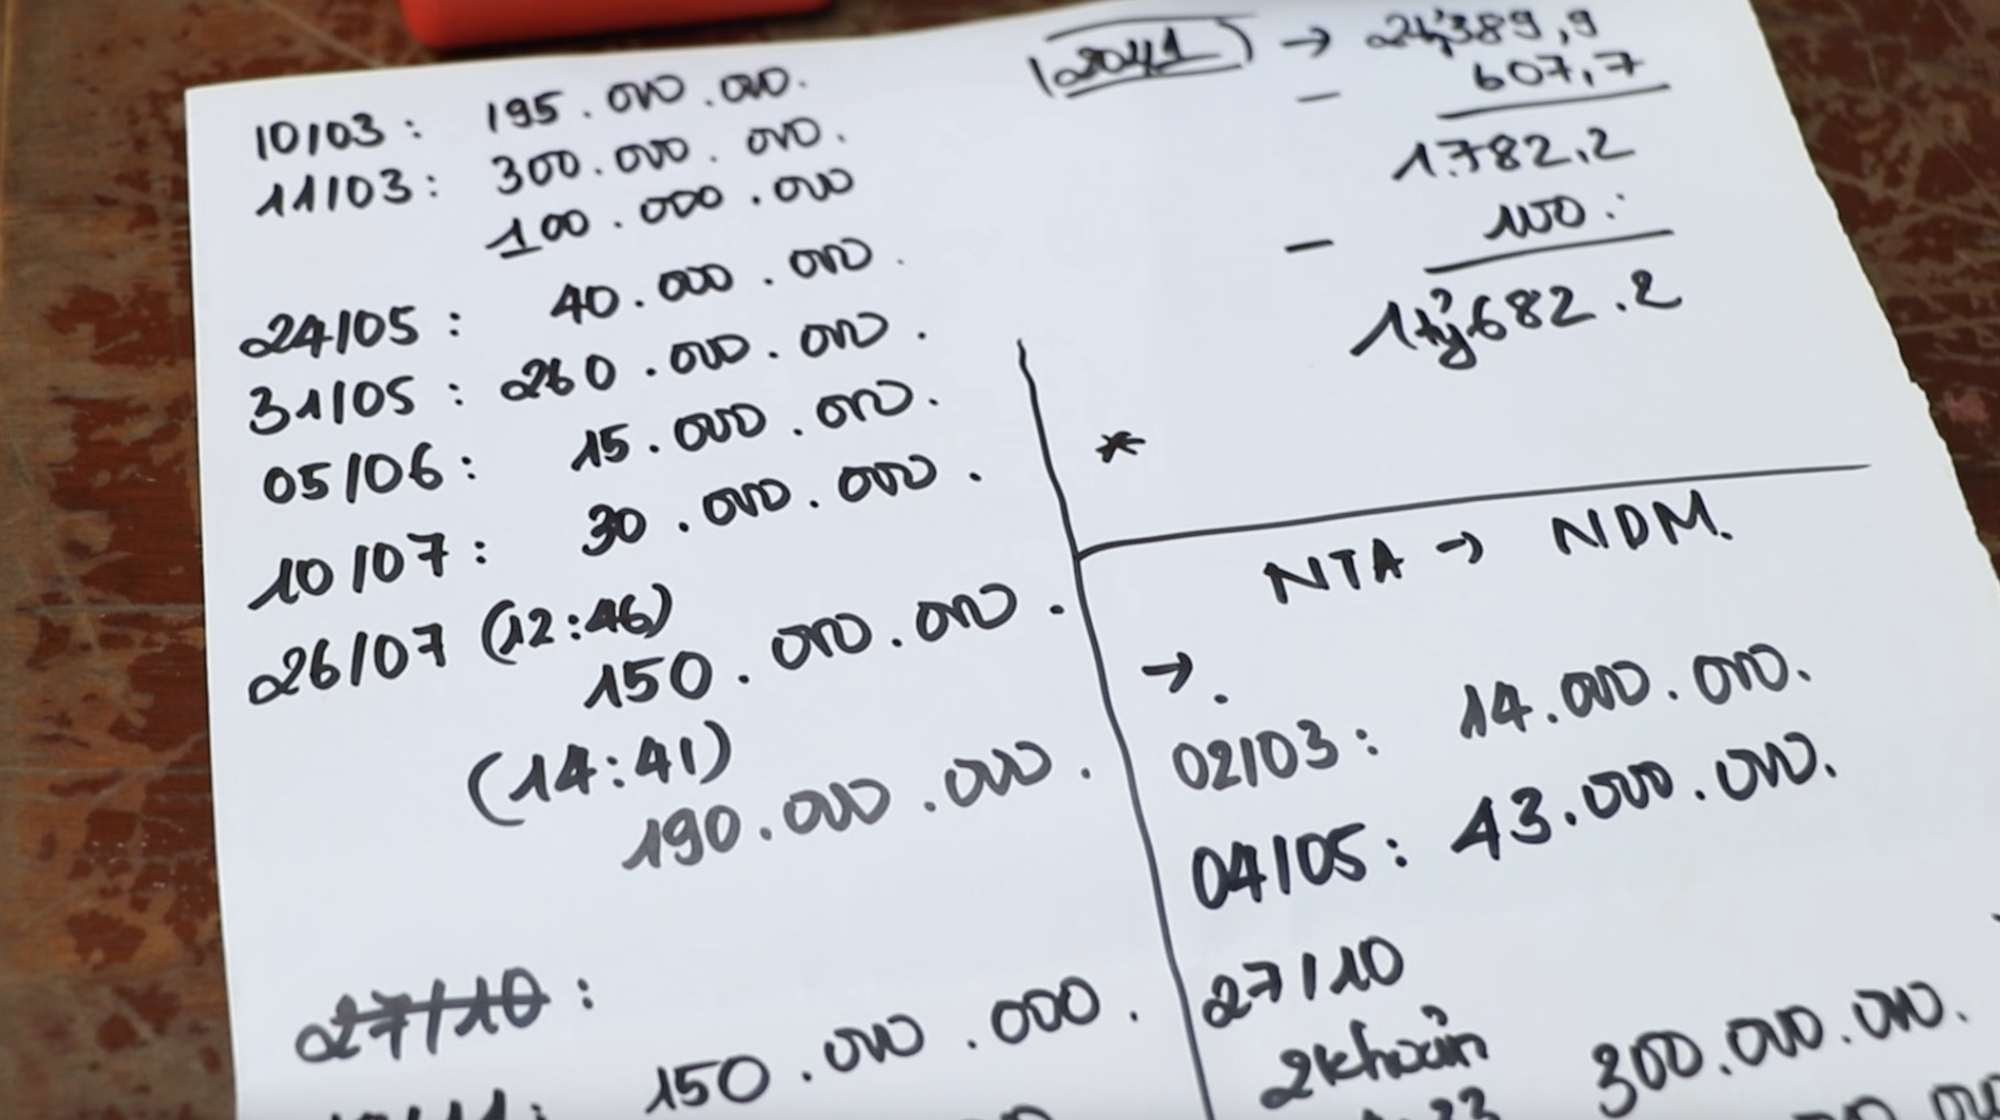 10/03: 195.000.000.
11/03: 300.000.000.
100.000.000
24/05: 40.000.000.
31/05: 260.000.000.
05/06: 15.000.000.
10/07: 30.000.000.
26/07 (12:46)
150.000.000.
(14:41)
190.000.000.
27/10:
150.000.000.
→ 2tỷ389,9
- 607,7
1.782,2
- 100.
1tỷ682.2
*
NTA → NDM.
→.
02/03: 14.000.000.
04/05: 43.000.000.
27/10
2 khoản 300.000.000.